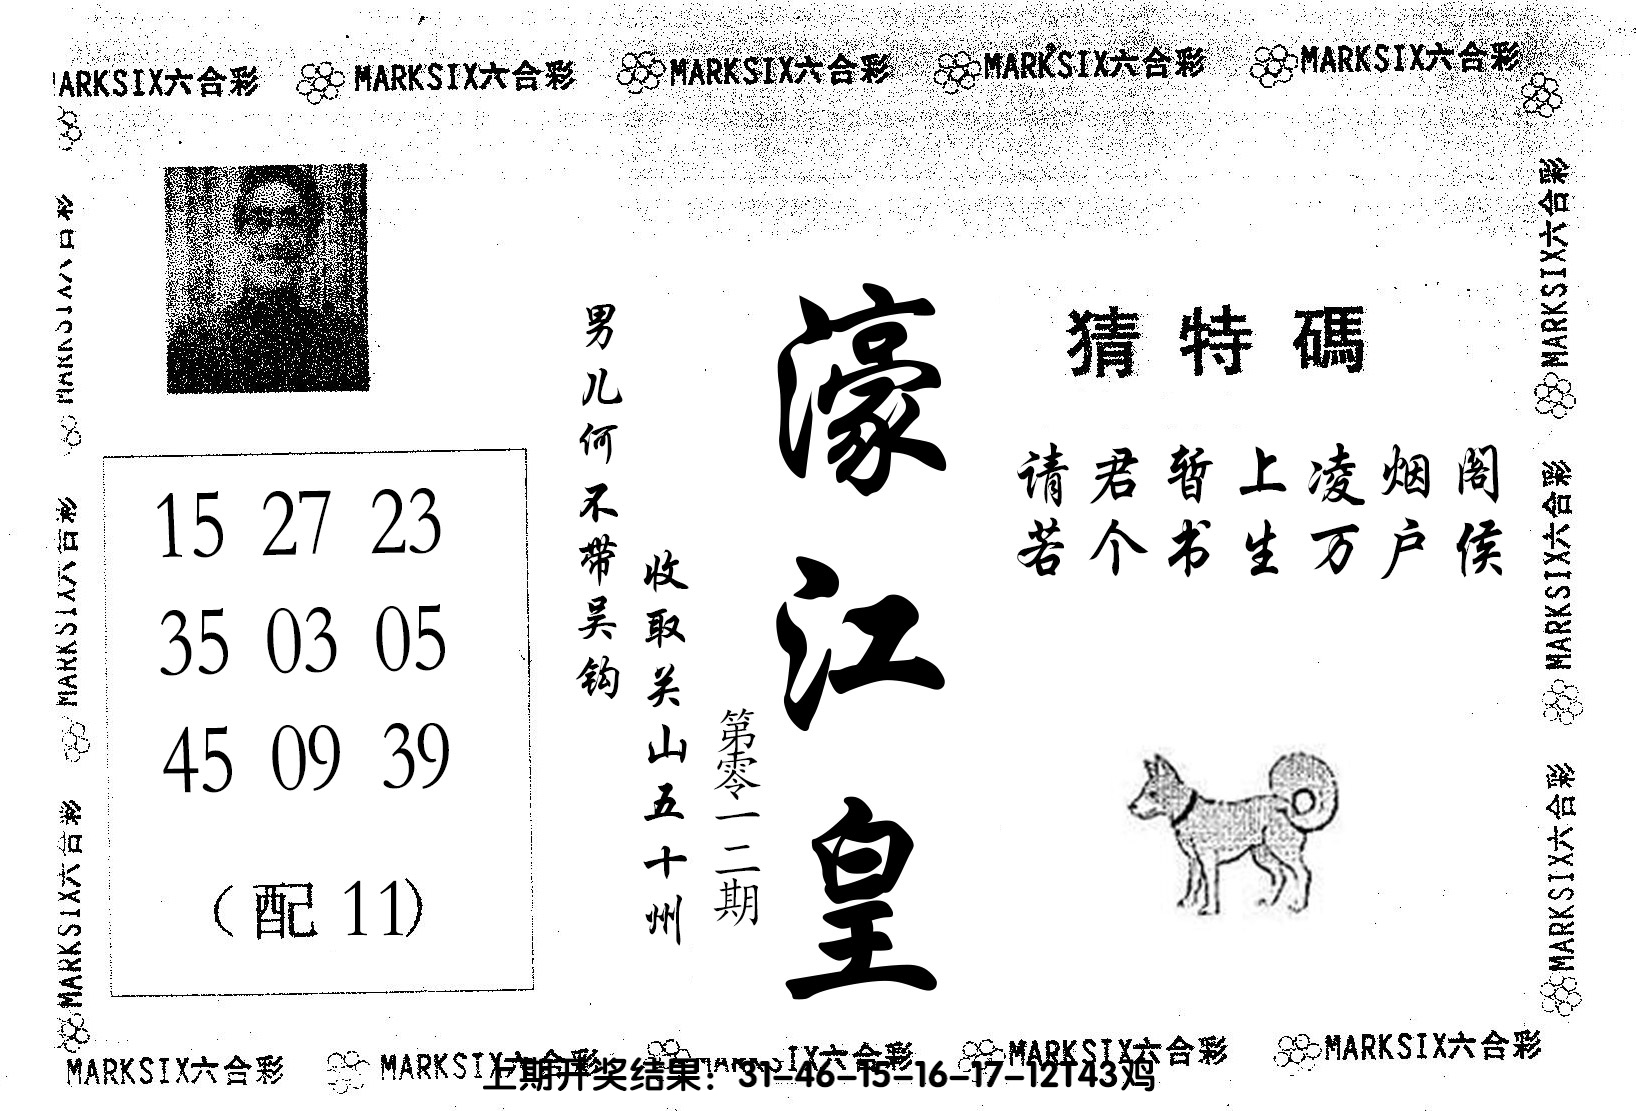 MARKSIX六合彩 MARKSIX六合彩 MARKSIX六合彩 MARKSIX六合彩
MARKSIX六合彩
MARKSIX六合彩
MARKSIX六合彩
MARKSIX六合彩
MARKSIX六合彩
MARKSIX六合彩
15 27 23
35 03 05
45 09 39
(配 11)
男儿何不带吴钩
收取关山五十州
第零一二期
濠江皇
猜特碼
请君暂上凌烟阁
若个书生万户侯
MARKSIX六合彩 MARKSIX六合彩 MARKSIX六合彩 MARKSIX六合彩
上期开奖结果:31-46-15-16-17-12T43鸡